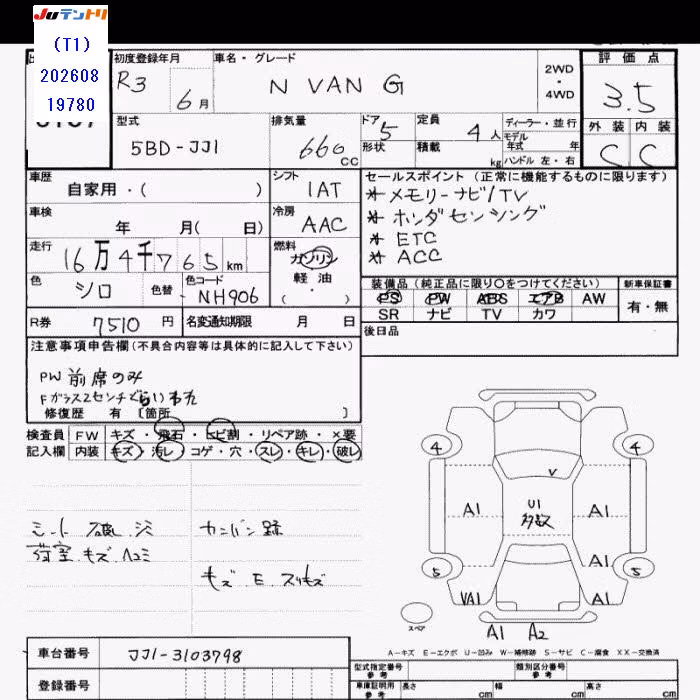 JUテントリ
(T1)
202608
19780
初度登録年月
R3
6月
車名・グレード
N VAN G
2WD
・
4WD
評価点
3.5
外装 内装
C C
型式
5BD-JJ1
排気量
660 cc
ドア 5
形状
定員 4人
積載 kg
ディーラー・並行
モデル
年式 年
ハンドル 左・右
車歴
自家用・( )
シフト
IAT
車検
年 月( 日)
冷房
AAC
走行
16万4千765km
燃料
ガソリン
軽油
( ・ )
色
シロ
色替
色コード
NH906
R券 7510円
名変通知期限 月 日
セールスポイント (正常に機能するものに限ります)
* メモリーナビ/TV
* ホンダセンシング
* ETC
* ACC
装備品 (純正品に限り○をつけてください)
新車保証書
PS PW ABS エアB AW
SR ナビ TV カワ
有・無
後日品
注意事項申告欄(不具合内容等は具体的に記入して下さい)
PW 前席のみ
Fガラス2センチぐらいわれ
修復歴 有〔箇所 〕
検査員 FW キズ・飛石・ヒビ割・リペア跡・×要
記入欄 内装 キズ・汚レ・コゲ・穴・スレ・キレ・破レ
シート 破 シミ
荷室 キズ ヘコミ
カンバン跡
キズ E スリキズ
4 4
V
A1 U1 A1
多数
A1
5 5
VA1 A1
スペア
A1 A2
A-キズ E-エクボ U-凹み W-補修跡 S-サビ C-腐食 XX-交換済
車台番号 JJ1-3103798
登録番号
型式指定番号
参考
類別区分番号
参考
車庫証明用
参考
長さ cm
幅 cm
高さ cm